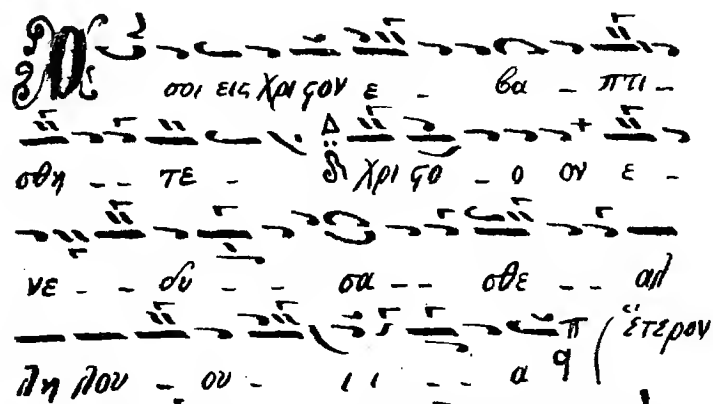 Ὅσοι εις Χριϛον ε - βα - πτι -
σθη - - τε - Δ Χριϛο - ο ον ε -
νε - - δυ - - σα - - σθε - - αλ
λη λου - ου - ι ι - - α π q ( ἕτερον